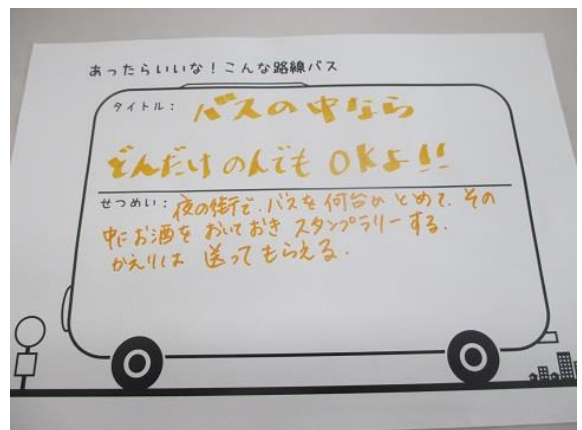 あったらいいな！こんな路線バス
タイトル： バスの中なら
どんだけのんでもOKよ!!
せつめい： 夜の街で、バスを何台かとめて、その
中にお酒をおいておきスタンプラリーする.
かえりは 送ってもらえる.